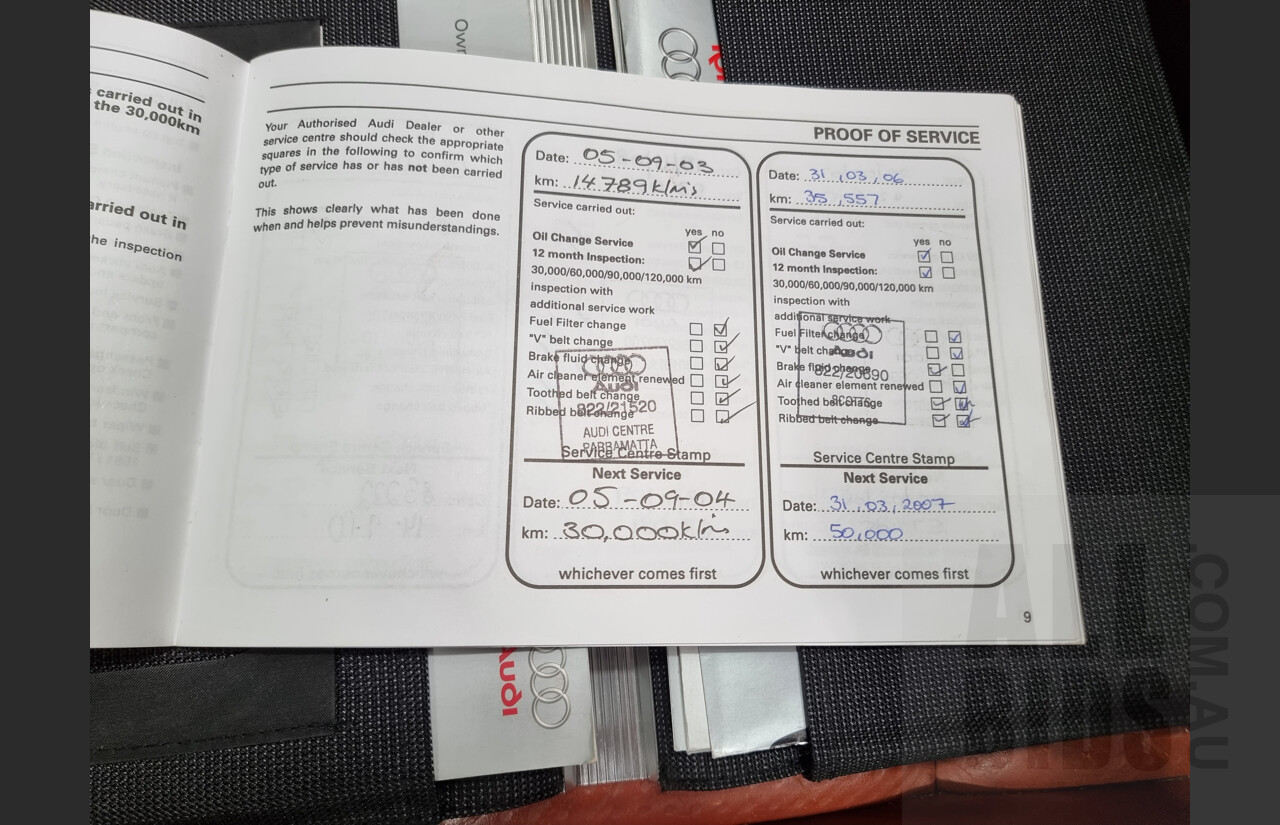 Own
carried out in
the 30,000km
arried out in
he inspection
Your Authorised Audi Dealer or other
service centre should check the appropriate
squares in the following to confirm which
type of service has or has not been carried
out.
This shows clearly what has been done
when and helps prevent misunderstandings.
PROOF OF SERVICE
Date: 05-09-03
km: 14789 klm's
Service carried out:
yes no
Oil Change Service
12 month Inspection:
30,000/60,000/90,000/120,000 km
inspection with
additional service work
Fuel Filter change
"V" belt change
Brake fluid change
Air cleaner element renewed
Toothed belt change
Ribbed belt change
Audi
822/21520
AUDI CENTRE
PARRAMATTA
Service Centre Stamp
Next Service
Date: 05-09-04
km: 30,000klm
whichever comes first
Date: 31,03,06
km: 35,557
Service carried out:
yes no
Oil Change Service
12 month Inspection:
30,000/60,000/90,000/120,000 km
inspection with
additional service work
Fuel Filter change
"V" belt change
Brake fluid change
Air cleaner element renewed
Toothed belt change
Ribbed belt change
Audi
822/20690
SCOTTS
Service Centre Stamp
Next Service
Date: 31,03,2007
km: 50,000
whichever comes first
9
Audi
ALL
BIDS
.COM.AU